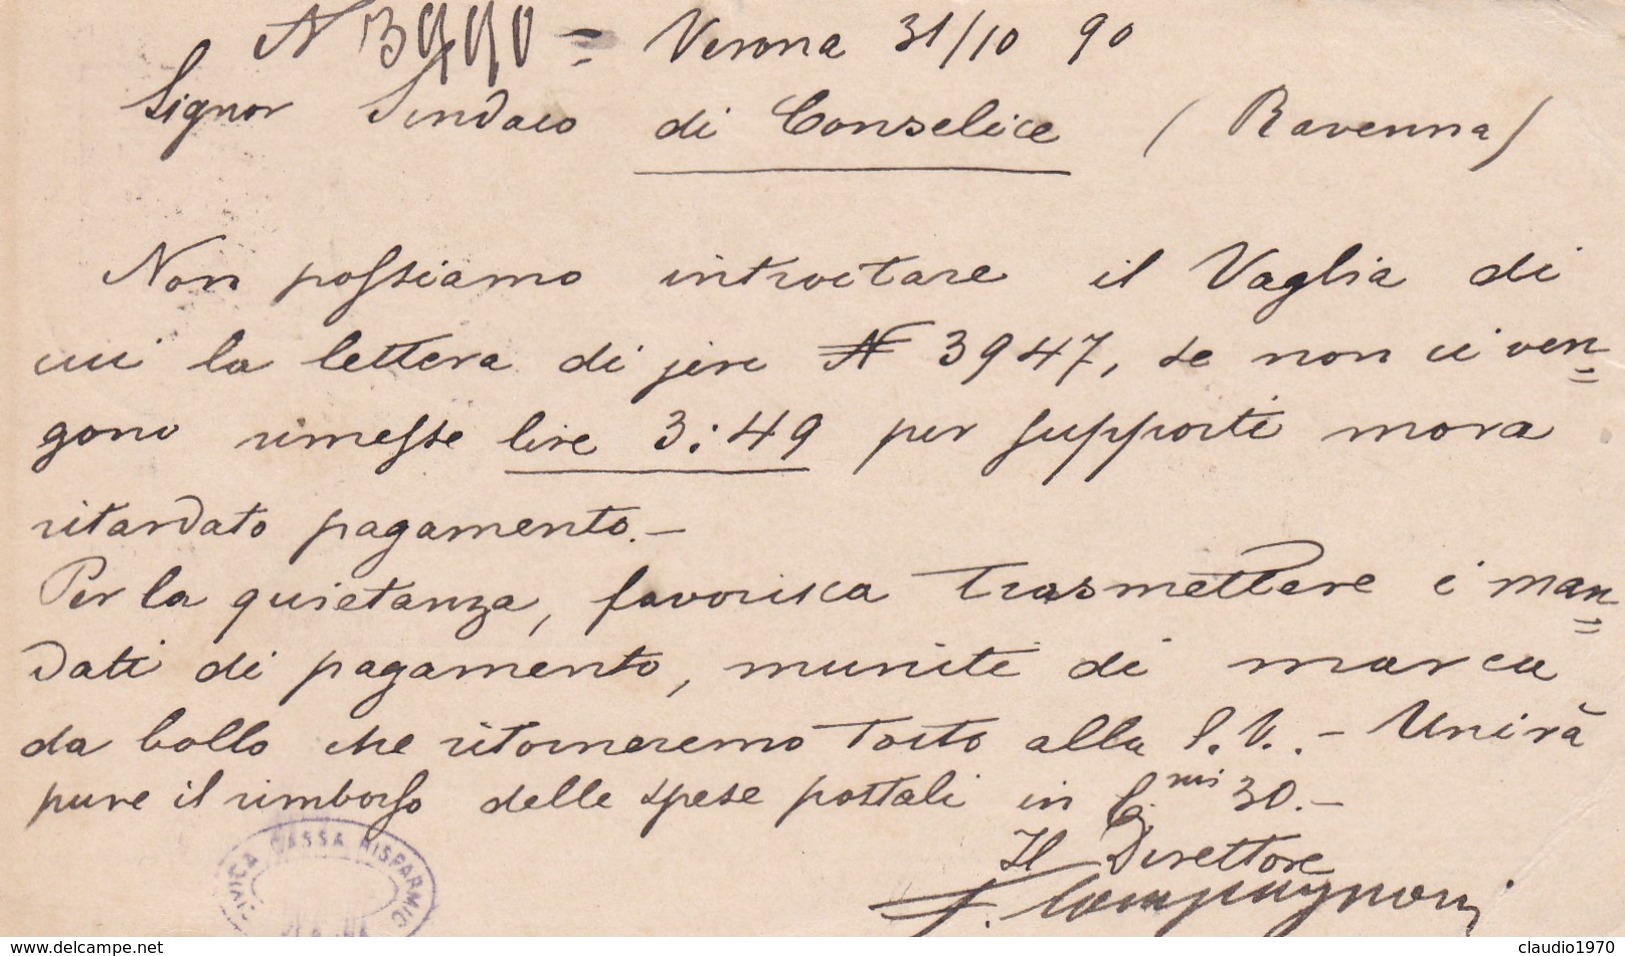 N 3990 = Verona 31/10 90
Signor Sindaco di Conselice (Ravenna)
Non possiamo introitare il Vaglia di
cui la lettera di jeri N 3947, se non ci ven=
gono rimesse lire 3:49 per supporti mora
ritardato pagamento.-
Per la quietanza, favorisca trasmettere i man=
dati di pagamento, muniti di marca
da bollo che ritorneremo tosto alla S.V..- Unirà
pure il rimborso delle spese postali in C.mi 30.-
Il Direttore
CIVICA CASSA RISPARMIO
www.delcampe.net
claudio1970